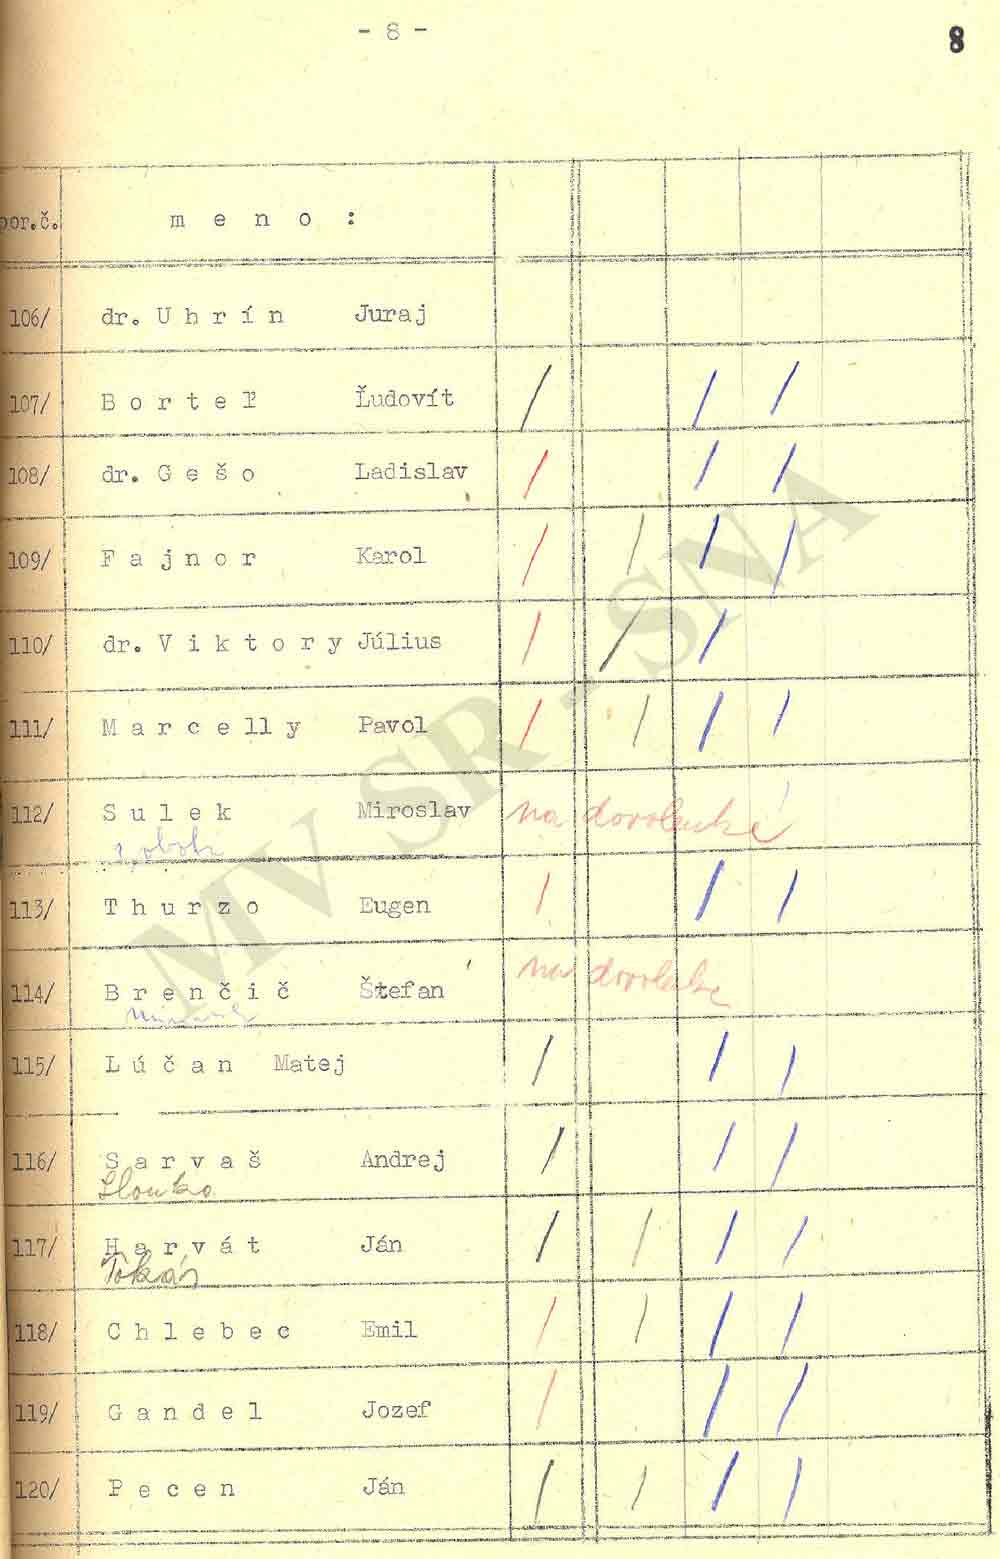 - 8 -
8
por.č. meno:
106/ dr. Uhrín Juraj
107/ Borteľ Ľudovít
108/ dr. Gešo Ladislav
109/ Fajnor Karol
110/ dr. Viktory Július
111/ Marcelly Pavol
112/ Sulek Miroslav na dovolenke
113/ Thurzo Eugen
114/ Brenčič Štefan na dovolenke
115/ Lúčan Matej
116/ Sarvaš Andrej
117/ Harvát Ján
Tokár
118/ Chlebec Emil
119/ Gandel Jozef
120/ Pecen Ján
MV SR - SNA